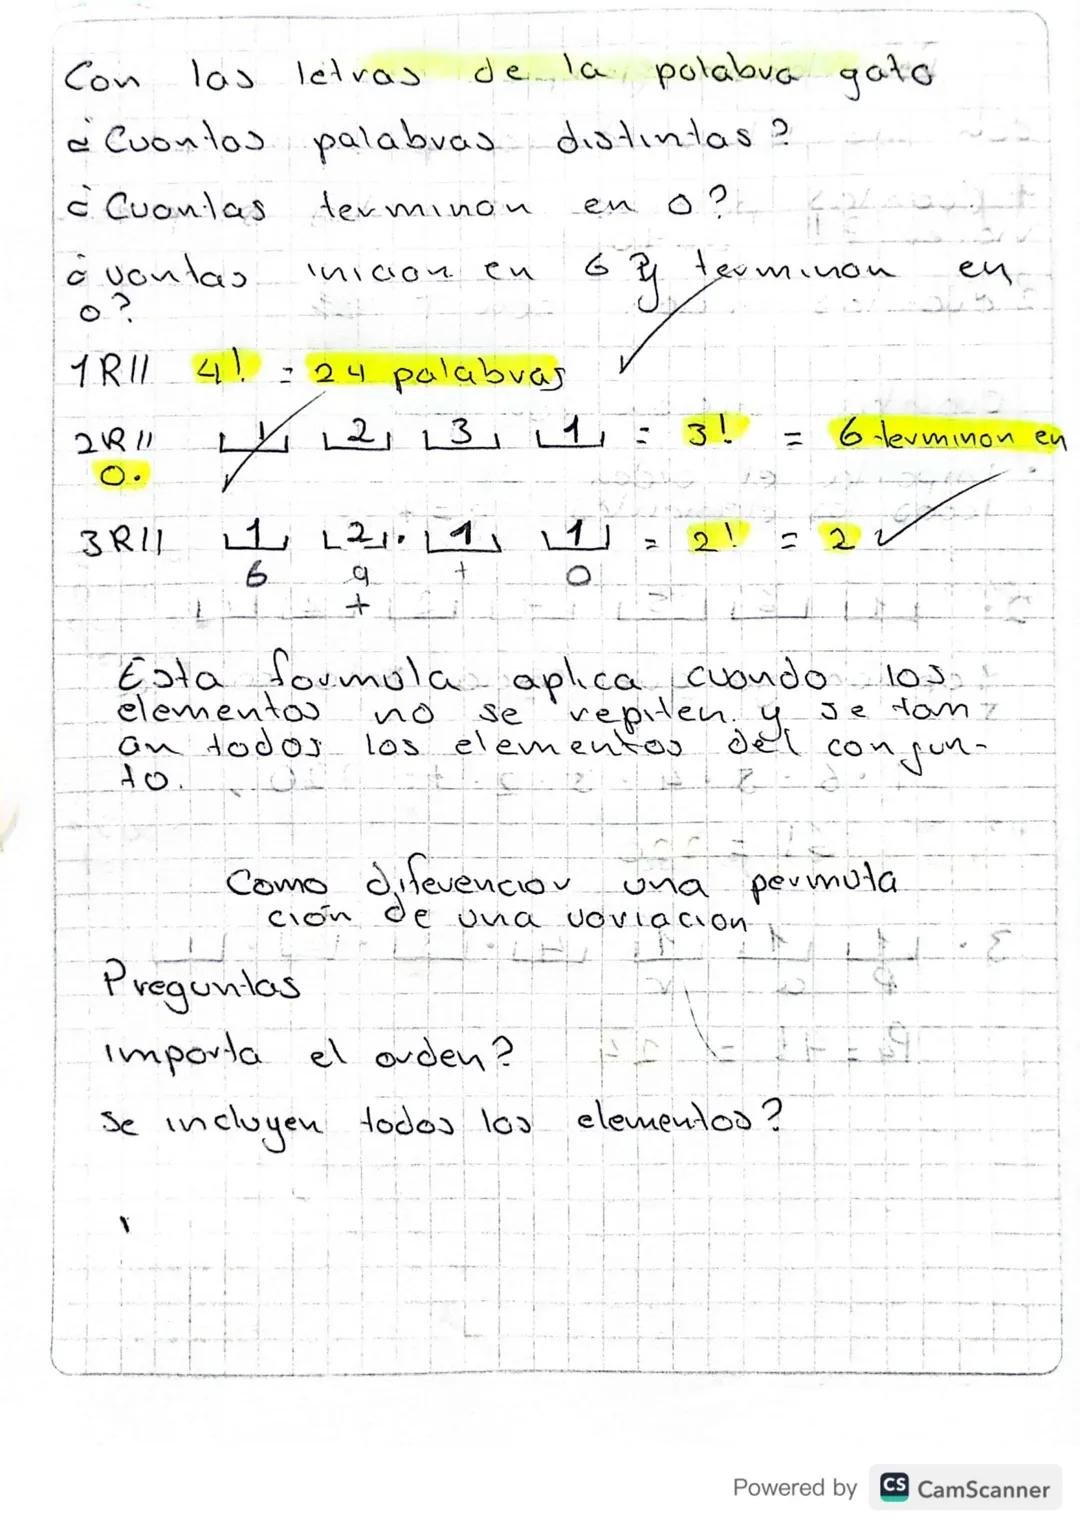 Con las letras de la palabra gato
¿Cuantas palabras distintas?
¿Cuantas terminan en o?
¿uantas inician en G y terminan en
o?
1R// 4! = 24 palabras
2R// 1 2 3 1 = 3! = 6 terminan en
o.
3R// 1 2 . 1 1 = 2! = 2
G a t o
t
Esta formula aplica cuando los
elementos no se repiten y se tom
an todos los elementos del conjun-
to.
Como diferenciar una permuta
ción de una variacion
Preguntas
importa el orden?
se incluyen todos los elementos?
Powered by CS CamScanner